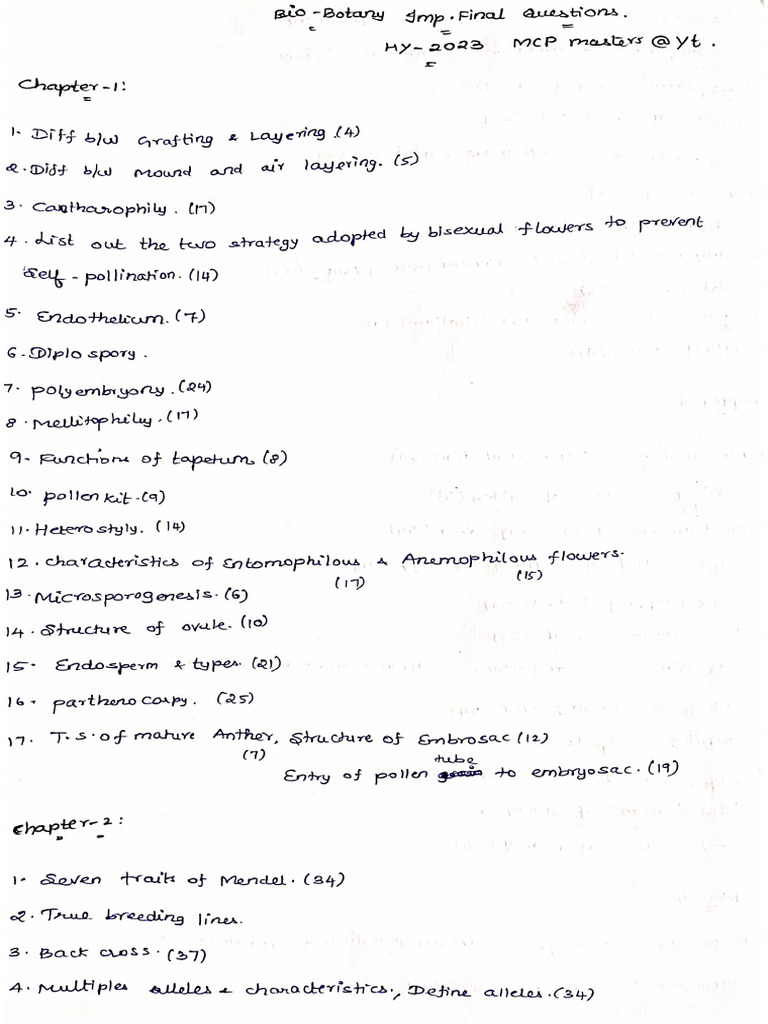 Bio-Botany Imp. Final Questions.
HY-2023 MCP masters @ Yt.
Chapter-1:
1. Diff b/w Grafting & Layering (4)
2. Diff b/w Mound and air layering. (5)
3. Cantharophily. (17)
4. List out the two strategy adopted by bisexual flowers to prevent
Self-pollination. (14)
5. Endothelium. (7)
6. Diplo spory.
7. polyembryony. (24)
8. Mellitophily. (17)
9. Functions of tapetum (8)
10. pollen kit. (9)
11. Heterostyly. (14)
12. characteristics of Entomophilous & Anemophilous flowers.
(17) (15)
13. Microsporogenesis. (6)
14. Structure of ovule. (10)
15. Endosperm & types. (21)
16. partheno carpy. (25)
17. T.S. of mature Anther, Structure of Embrosac (12)
(7) tube
Entry of pollen to embryosac. (19)
Chapter-2:
1. Seven traits of Mendel. (34)
2. True breeding lines.
3. Back cross. (37)
4. Multiples alleles & characteristics., Define alleles. (34)